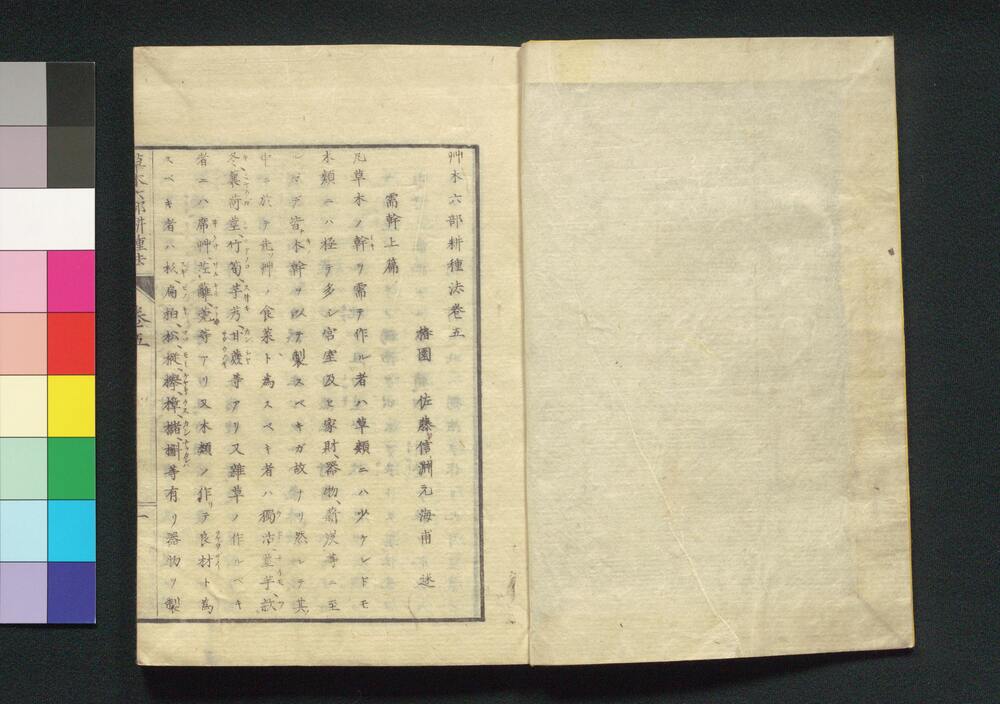 艸木六部耕種法卷五
椿園 佐藤信淵元海甫 述
需幹上篇
凡草木ノ幹ヲ需テ作ル者ハ草類ニハ少ケレドモ
木類ニハ極テ多シ宮室及ヒ家財、器物、薪炭等ニ至
ルマデ皆木幹ヲ以テ製スベキガ故ナリ然レテ其
中ニ於テ此艸ノ食菜ト為スベキ者ハ獨活、芋、款
冬、蘘荷、竹筍、芋、甘蔗等アリ又雜草ノ作ルベキ
者ニハ席艸、藺、莞等アリ又木類ノ作リテ良材ト為
スベキ者ハ杉、扁柏、松、樅、欅、樟、櫧、等有リ器物ヲ製
草木六部耕種法 卷五 一